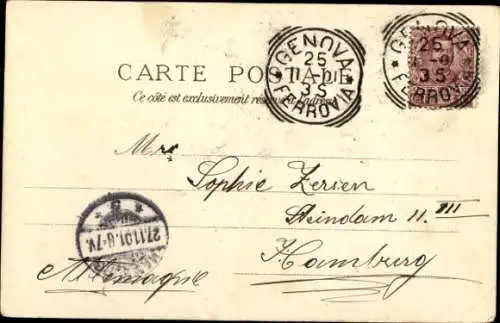 GENOVA
25
11-01E
3S
FERROVIA
GENOVA
25
-9
3S
FERROVIA
CARTE POSTALE
Ce côté est exclusivement réservé à l'adresse
Mrs
Sophie Zersen
Steindam 11. III
Hamburg
Allemagne
27.11.01.6-7N.